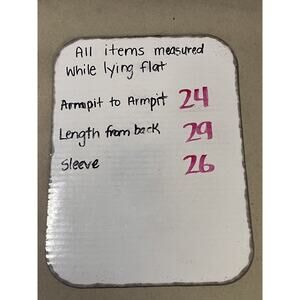 All items measured
while lying flat
Armpit to Armpit 24
Length from back 29
Sleeve 26